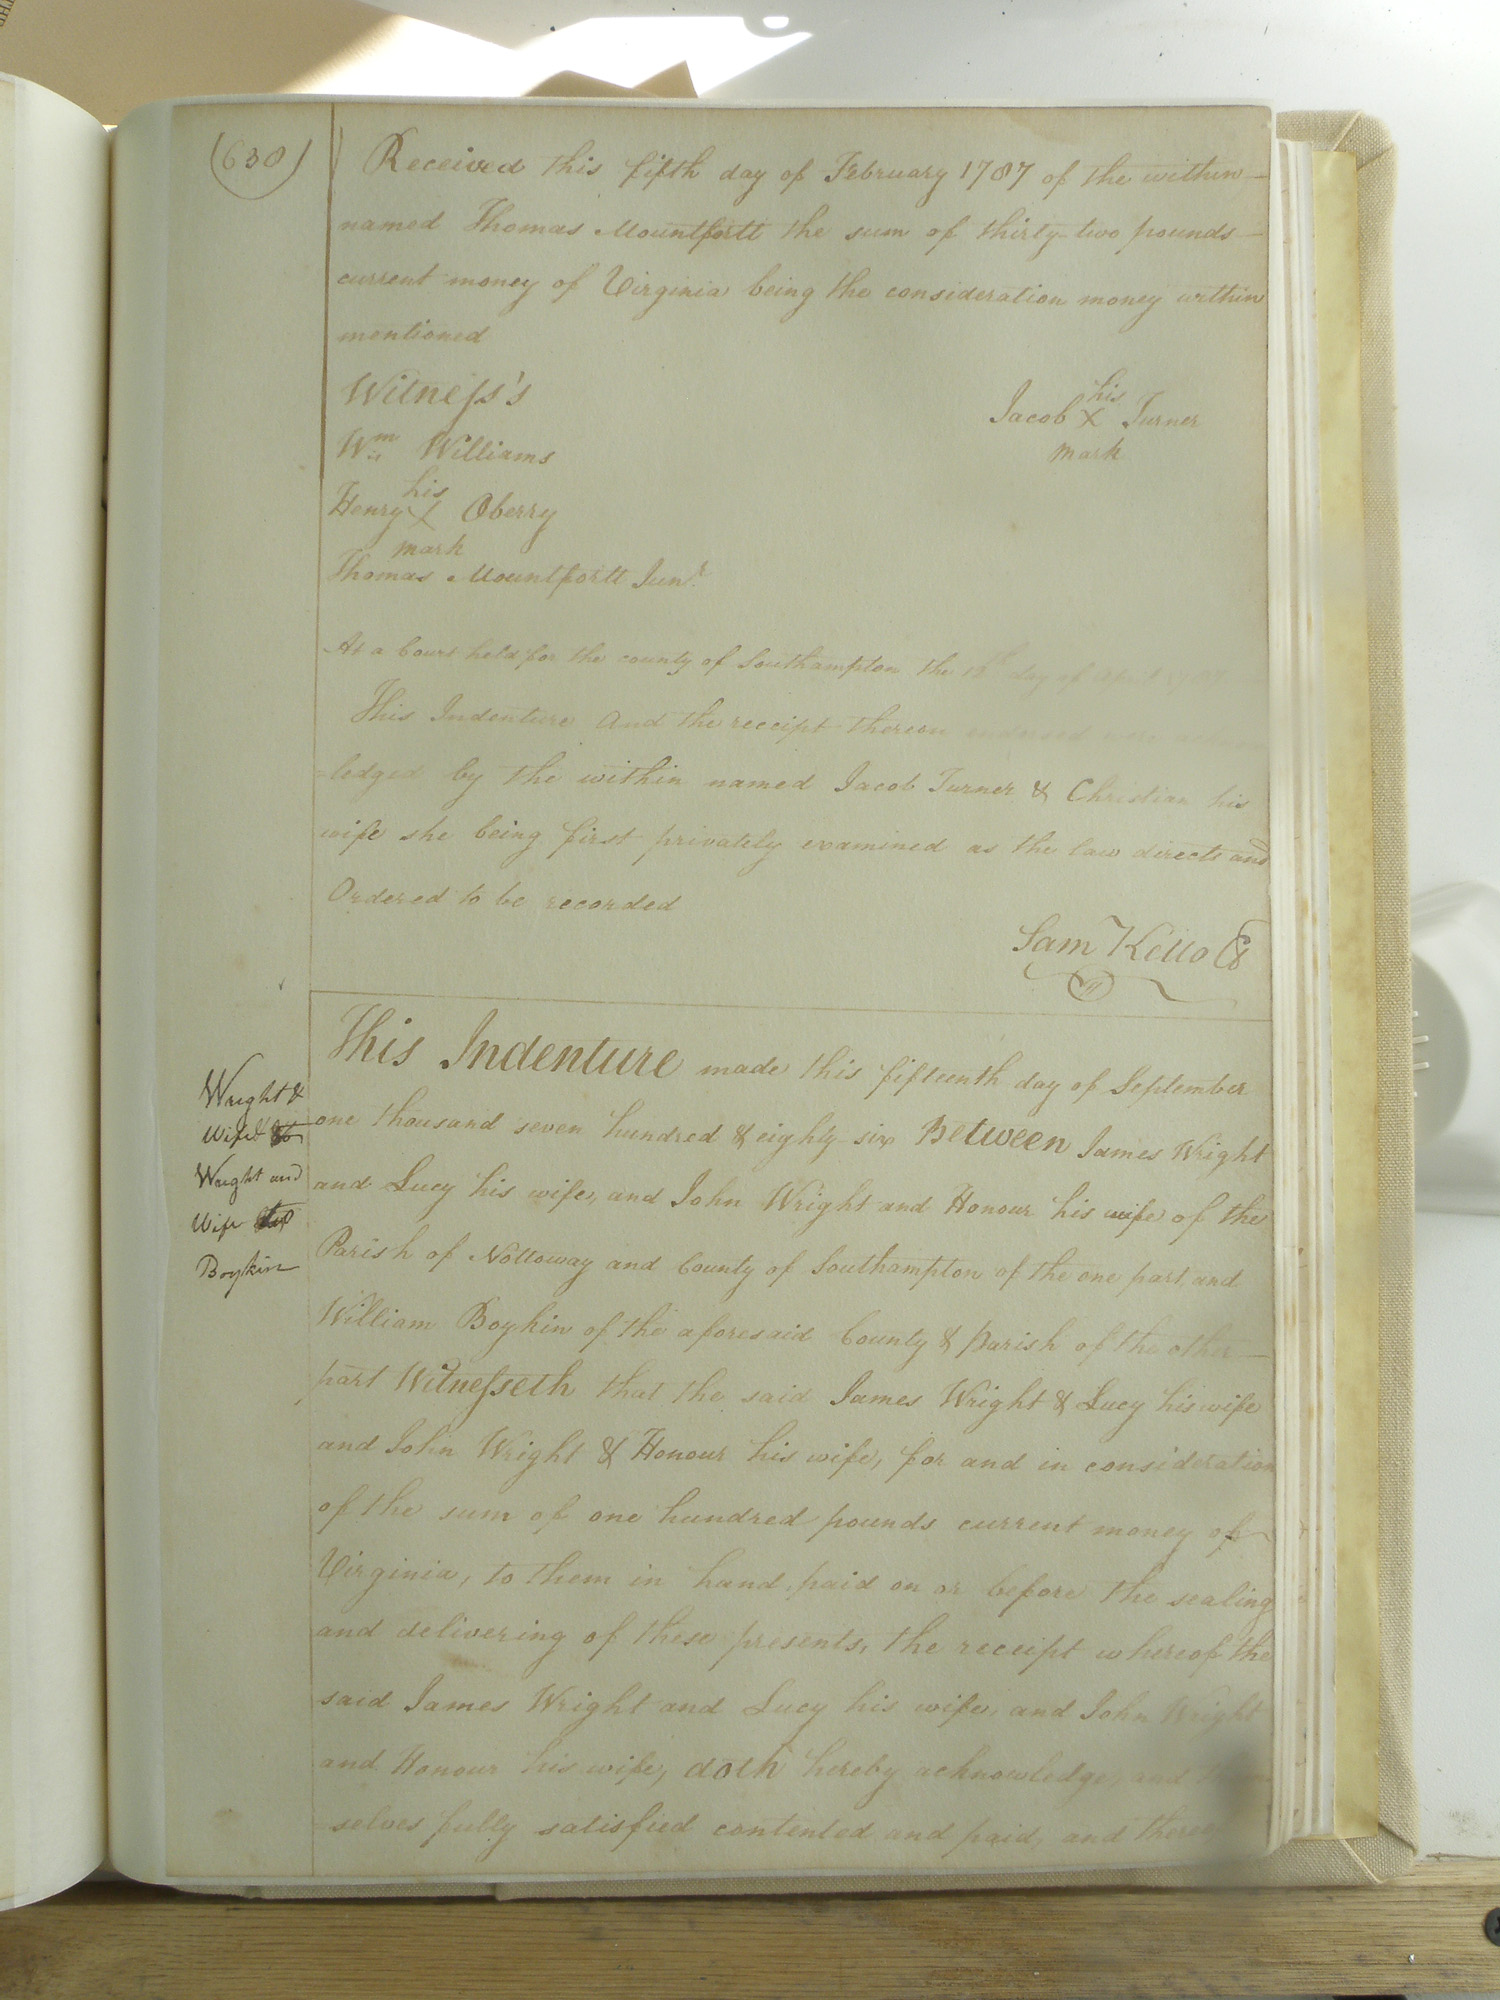 (638)
Received this fifth day of February 1787 of the within
named Thomas Mountfortt the sum of thirty two pounds
current money of Virginia being the consideration money within
mentioned
Witness's
his
Jacob X Turner
mark
Wm Williams
his
Henry X Oberry
mark
Thomas Mountfortt Junr
At a Court held for the county of Southampton the 12th day of April 1787
This Indenture And the receipt thereon endorsed were
=ledged by the within named Jacob Turner & Christian his
wife she being first privately examined as the law directs and
Ordered to be recorded
Sam Kello
This Indenture made this fifteenth day of September
one thousand seven hundred & eighty six Between James Wright
and Lucy his wife, and John Wright and Honour his wife of the
Parish of Nottoway and County of Southampton of the one part, and
William Boykin of the aforesaid County & Parish of the other
part Witnesseth that the said James Wright & Lucy his wife
and John Wright & Honour his wife, for and in consideration
of the sum of one hundred pounds current money of
Virginia, to them in hand paid on or before the sealing
and delivering of these presents, the receipt whereof the
said James Wright and Lucy his wife, and John Wright
and Honour his wife, doth hereby acknowledge, and
=selves fully satisfied contented and paid, and
Wright &
Wife
Wright and
Wife to
Boykin